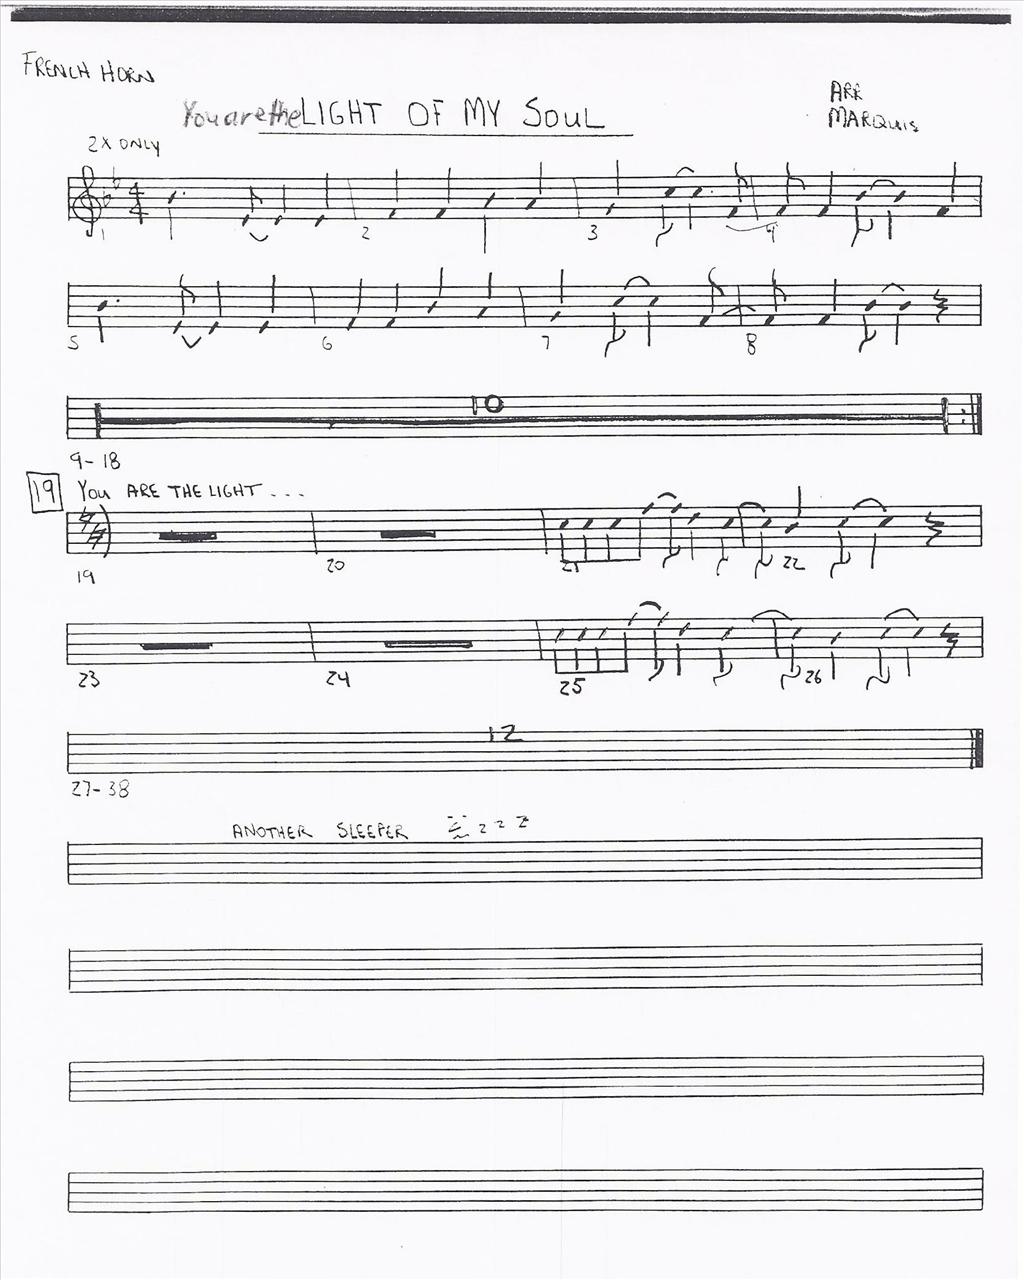 FRENCH HORN
You are the LIGHT OF MY SOUL
ARR
MARQUIS
2X ONLY
1 2 3 4
5 6 7 8
10
9-18
19 YOU ARE THE LIGHT...
19 20 21 22
23 24 25 26
12
27-38
ANOTHER SLEEPER z z z